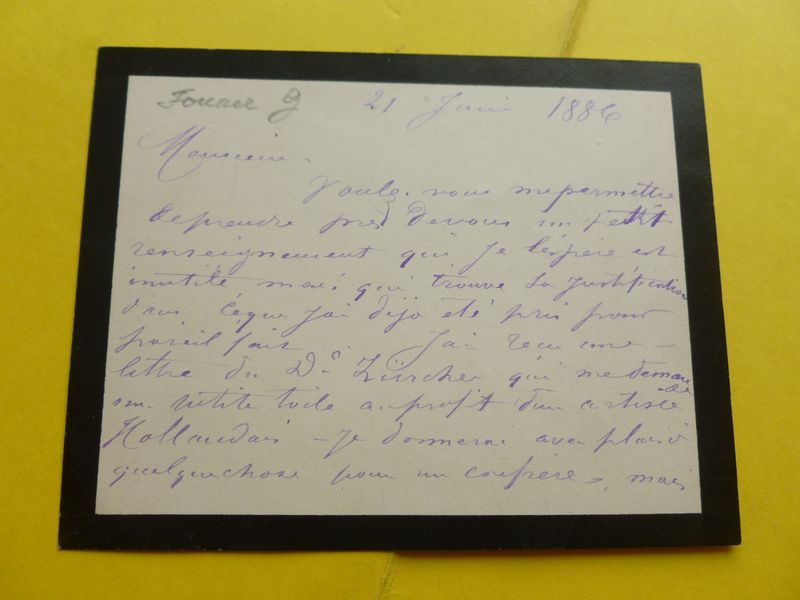 Fouace G
21 Juin 1886
Monsieur.
Voulez-vous me permettre
de prendre près de vous un petit
renseignement qui je l'espère est
inutile mais qui trouve sa justification
dans ce que j'ai déjà été pris pour
pareil fait. J'ai reçu une
lettre du Dr Zürcher qui me demande
une petite toile au profit d'un artiste
Hollandais – Je donnerai avec plaisir
quelque chose pour un confrère, mais